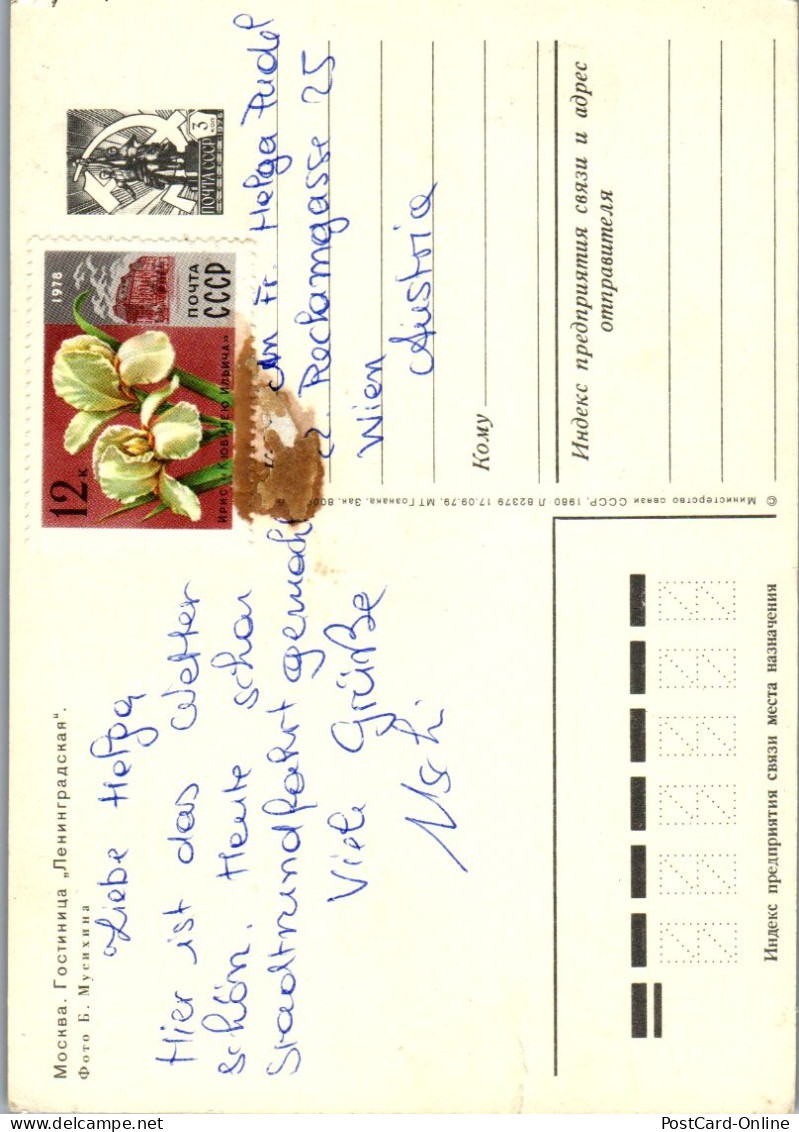 Москва. Гостиница „Ленинградская".
Фото Б. Мусихина
Liebe Helga
Hier ist das Wetter
schön. Heute schon
Stadtrundfahrt gemacht
Viele Grüße
Uschi
ПОЧТА СССР 3 КОП
1978
ПОЧТА
СССР
12 к
ИРИС «К ЮБИЛЕЮ ИЛЬИЧА»
An Fr. Helga Pudel
Reklamgasse 25
Wien
Austria
Кому
Индекс предприятия связи и адрес
отправителя
© Министерство связи СССР, 1980 Л 82379 17.09.79. МТ Гознака. Зак. 800
Индекс предприятия связи места назначения
PostCard-Online